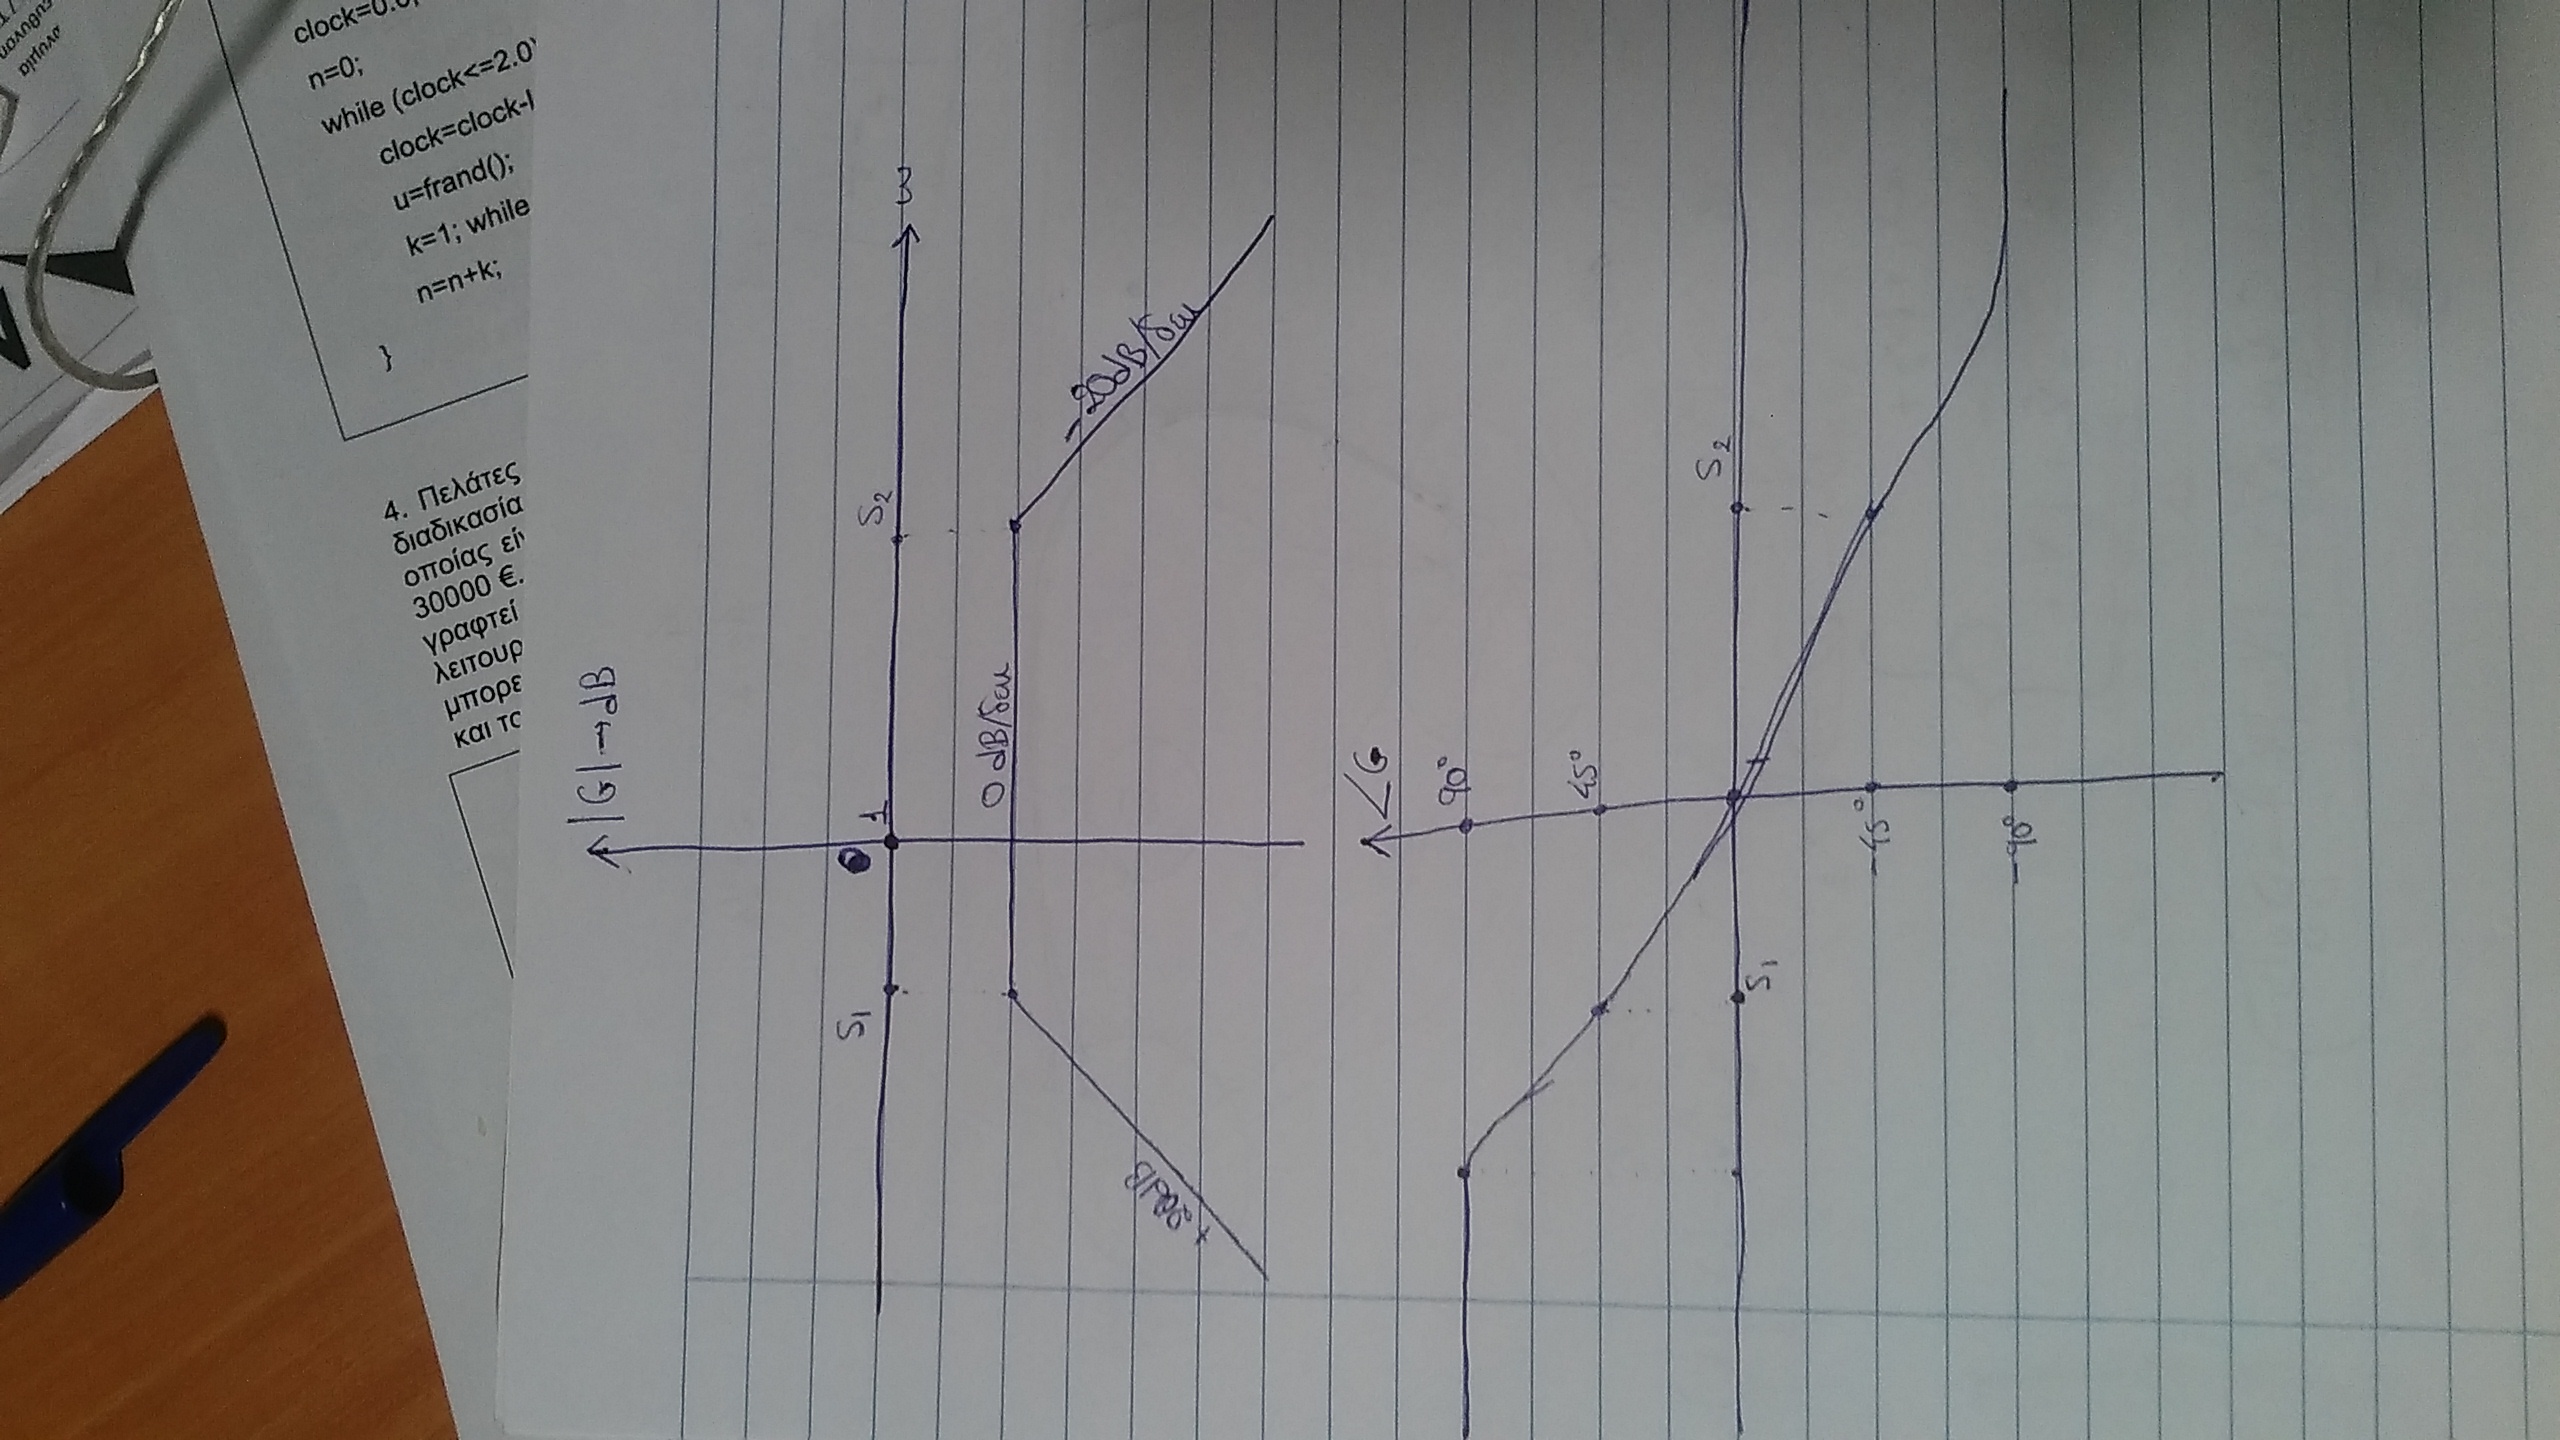 ευθυνση
ανυμία
clock=0.0;
n=0;
while (clock<=2.0)
clock=clock-l
u=frand();
k=1; while
n=n+k;
}
4. Πελάτες
διαδικασία
οποίας εί
30000 €.
γραφτεί
λειτουρ
μπορε
και το
|G|→dB
S1 1 S2
ω
0 dB/δεκ
+20dB
-20dB/δεκ
∠G
90°
45°
S2
S1 1
-45°
-90°